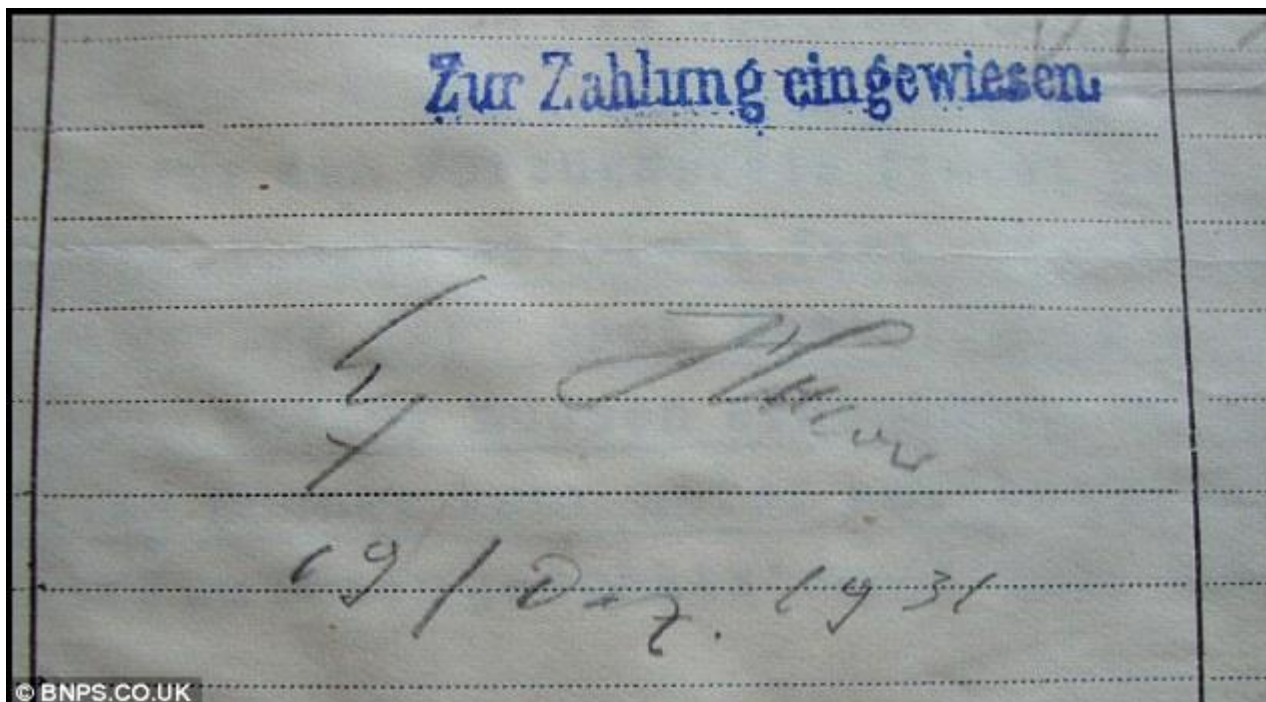 Zur Zahlung eingewiesen.
19/Dez. 1931
© BNPS.CO.UK